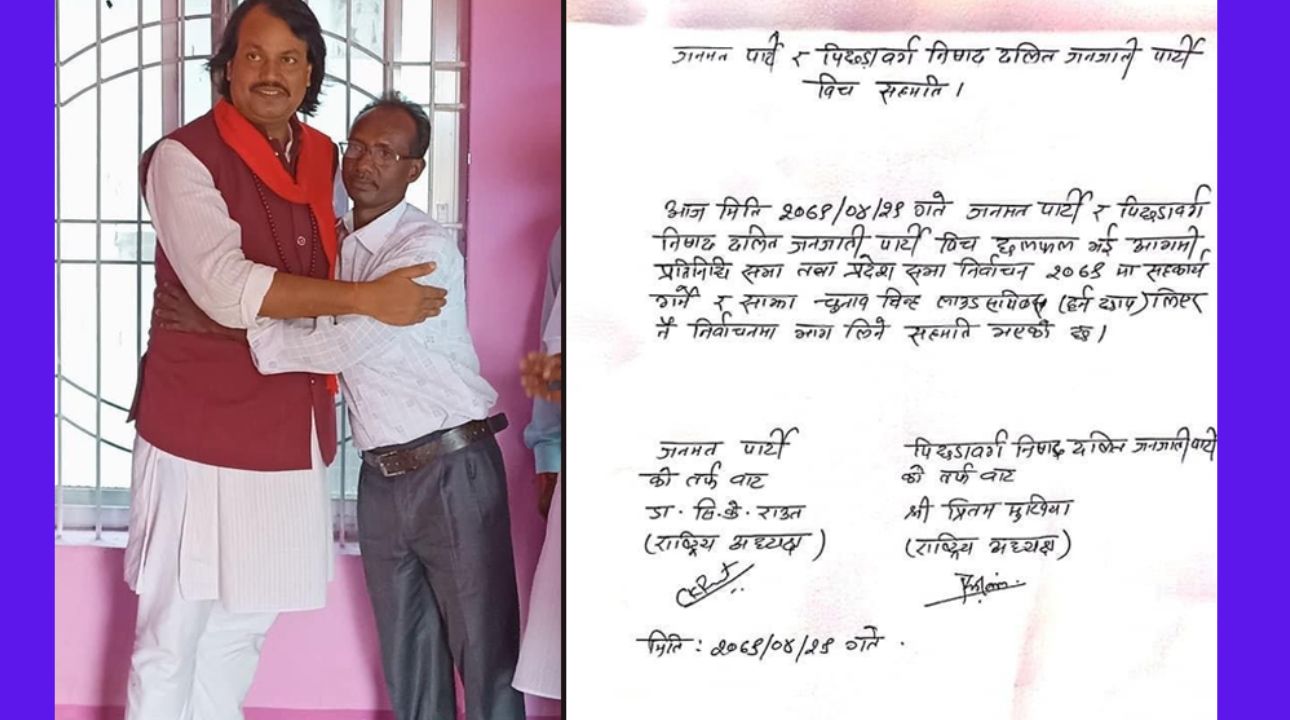 जनमत पार्टी र पिछडावर्ग निषाद दलित जनजाती पार्टी
विच सहमति ।
आज मिति २०७९/०४/२९ गते जनमत पार्टी र पिछडावर्ग
निषाद दलित जनजाती पार्टी विच छलफल भई आगामी
प्रतिनिधि सभा तथा प्रदेश सभा निर्वाचन २०७९ मा सहकार्य
गर्ने र साझा चुनाव चिन्ह लाउड स्पिकर (हर्न छाप) लिएर
नै निर्वाचनमा भाग लिने सहमति भएको छ ।
जनमत पार्टी
को तर्फ वाट
डा. सि.के. राउत
(राष्ट्रिय अध्यक्ष)
पिछडावर्ग निषाद दलित जनजाती पार्टी
को तर्फ वाट
श्री प्रितम मुखिया
(राष्ट्रिय अध्यक्ष)
मिति : २०७९/०४/२९ गते .